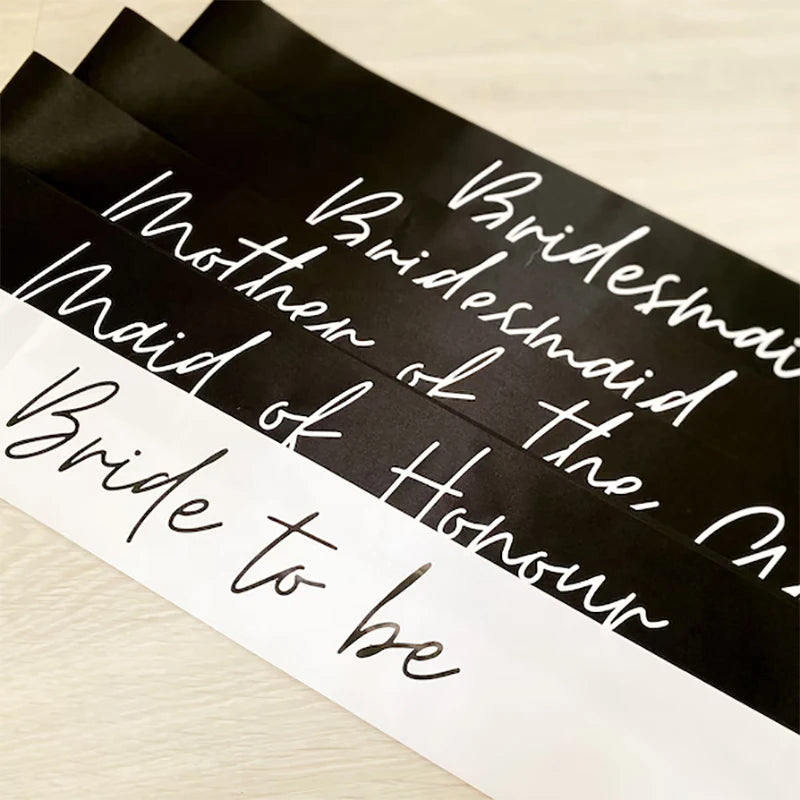 Bridesmai
Bridesmaid
Mother of the
Maid of Honour
Bride to be